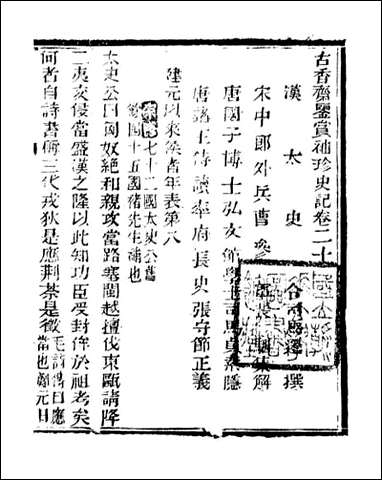 古香齋鑒賞袖珍史記卷二十
漢太史令司馬遷撰
宋中郎外兵曹參軍裴駰集解
唐國子博士弘文館學士司馬貞索隱
唐諸王侍讀率府長史張守節正義
建元以來侯者年表第八
索隱七十二國太史公舊
餘四十五國褚先生補也
太史公曰匈奴絶和親攻當路塞閩越擅伐東甌請降
二夷交侵當盛漢之隆以此知功臣受封侔於祖考矣
何者自詩書稱三代戎狄是應荆荼是徵毛詩傳曰應
當也鄭元曰